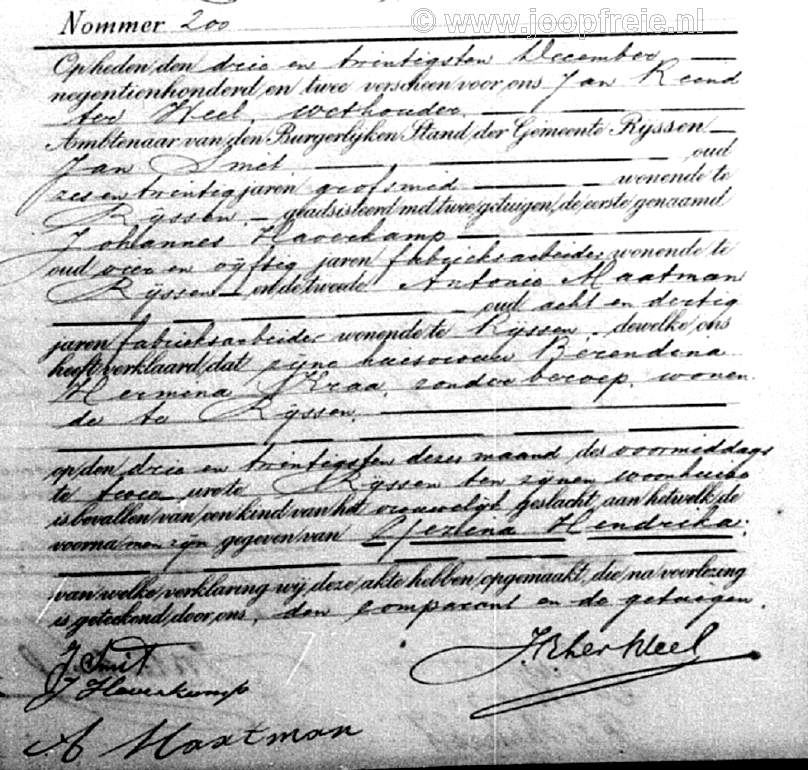 © www.joopfreie.nl
Nommer 200
Op heden, den drie en twintigsten December
negentienhonderd en twee verscheen voor ons Jan Reend
ter Weel, wethouder
Ambtenaar van den Burgerlijken Stand, der Gemeente Ryssen
Jan Smit oud
zes en twintig jaren, grofsmid wonende te
Ryssen, geadsisteerd met twee getuigen, de eerste genaamd
Johannes Haverkamp
oud vier en vyftig jaren fabrieksarbeider wonende te
Ryssen en de tweede Antonie Maatman
oud acht en dertig
jaren fabrieksarbeider wonende te Ryssen, dewelke ons
heeft verklaard, dat zijne huisvrouw Berendina
Hermina Kraa, zonder beroep, wonen
de te Ryssen.
op den drie en twintigsten dezer maand des voormiddags
te twee ure te Ryssen ten zijnen woonhuize
is bevallen van een kind van het vrouwelijk geslacht, aan hetwelk de
voornamen zijn gegeven van Gezina Hendrika.
van welke verklaring wij deze akte hebben opgemaakt, die na voorlezing
is geteekend door ons, den comparant en de getuigen.
J. Smit
J Haverkamp
J.R. ter Weel
A Maatman